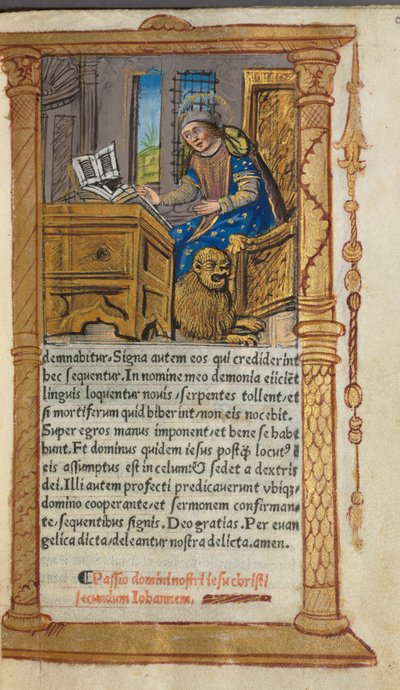 demnabitur. Signa autem eos qui crediderint
hec sequentur. In nomine meo demonia eiiciēt
linguis loquentur nouis, serpentes tollent, et
si mortiferum quid biberint, non eis nocebit.
Super egros manus imponent, et bene se habe
bunt. Et dominus quidem iesus postq̄ locutꝰ
eis assumptus est in celum: & sedet a dextris
dei. Illi autem profecti predicauerunt vbiqꝫ
domino cooperante, et sermonem confirman-
te, sequentibus signis. Deo gratias. Per euan
gelica dicta, deleantur nostra delicta. amen.
¶ Passio domini nostri iesu christi
secundum Iohannem,